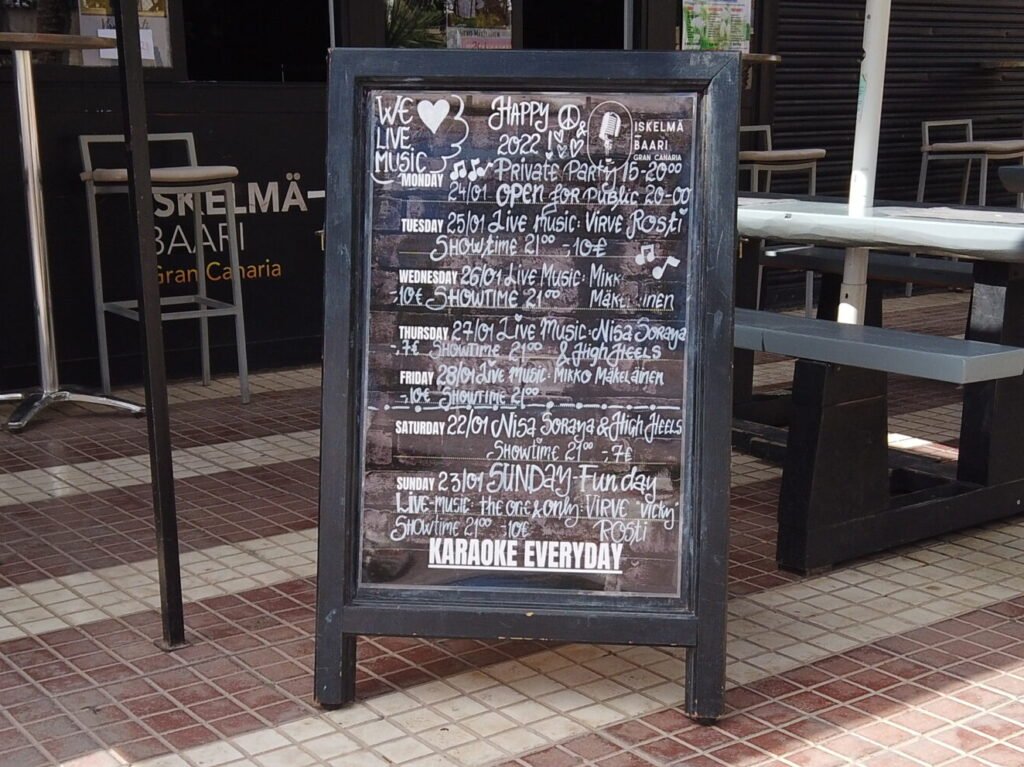 WE ♥
LIVE
MUSIC
HAPPY
2022 !
ISKELMÄ
-BAARI
GRAN CANARIA
MONDAY Private Party 15-20⁰⁰
24/01 OPEN for Public 20-00
TUESDAY 25/01 Live Music: Virve Rosti
Showtime 21⁰⁰ -10€
WEDNESDAY 26/01 Live Music: Mikk
-10€ Showtime 21⁰⁰ Mäkeläinen
THURSDAY 27/01 Live Music: Nisa Soraya
-7€ Showtime 21⁰⁰ & High Heels
FRIDAY 28/01 Live Music: Mikko Mäkeläinen
-10€ Showtime 21⁰⁰
SATURDAY 22/01 Nisa Soraya & High Heels
Showtime 21⁰⁰ -7€
SUNDAY 23/01 SUNDAY-Funday
Live-music: the one & only: Virve "Vicky"
Showtime 21⁰⁰ -10€ Rosti
KARAOKE EVERYDAY
ISKELMÄ-
BAARI
Gran Canaria